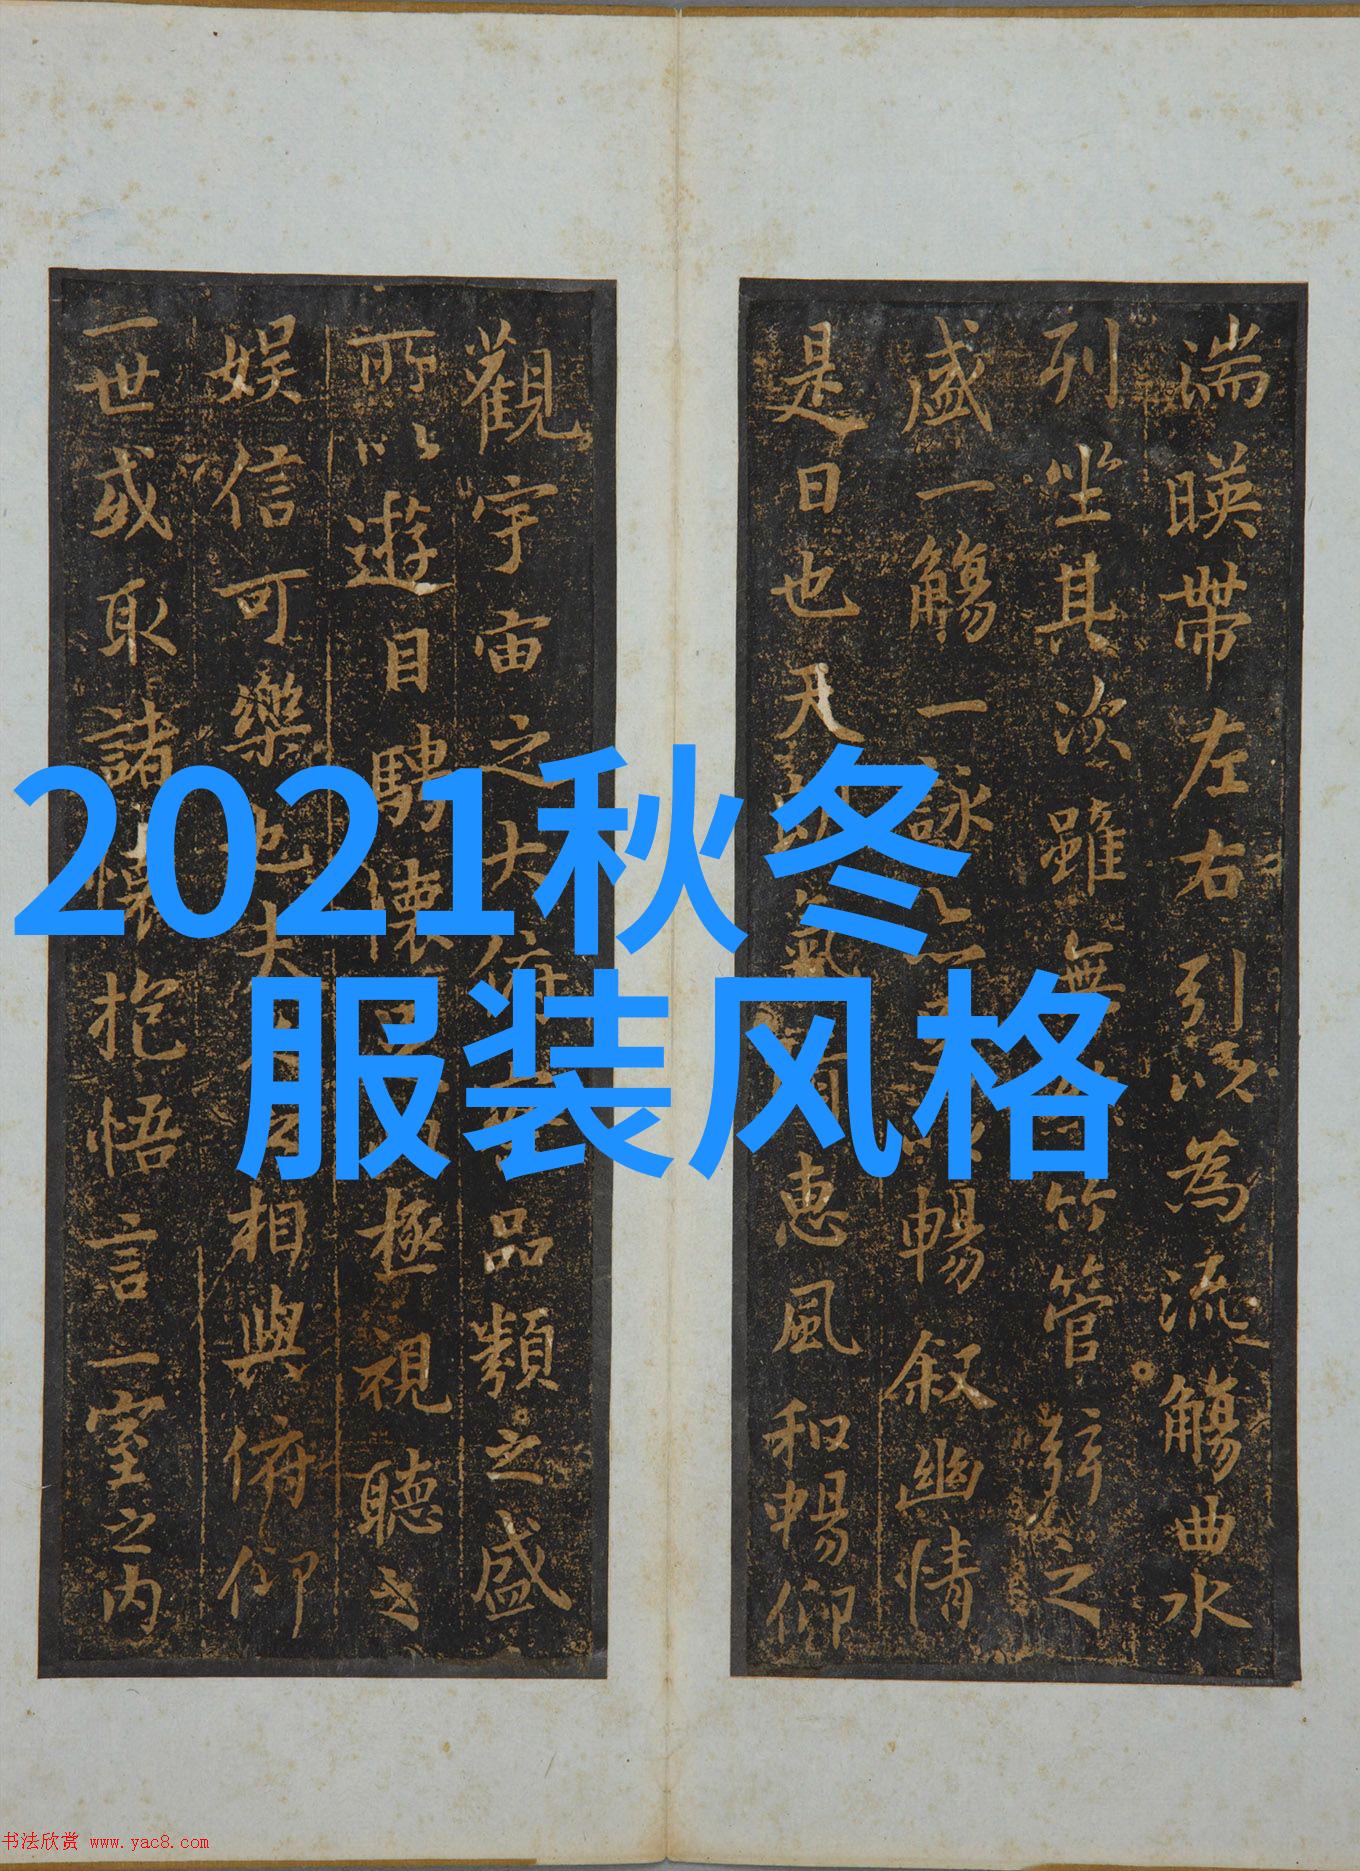 2021秋冬
服装风格
湍暎帶左右引以為流觴曲水
列坐其次雖無竹管弦之
盛一觴一詠暢叙幽情
是日也天氣惠風和暢仰
觀宇宙之大俯品類之盛
所以遊目騁懷極視聽之
娛信可樂也夫相與俯仰
一世或取諸懷抱悟言一室之内
书法欣赏 www.yac8.com